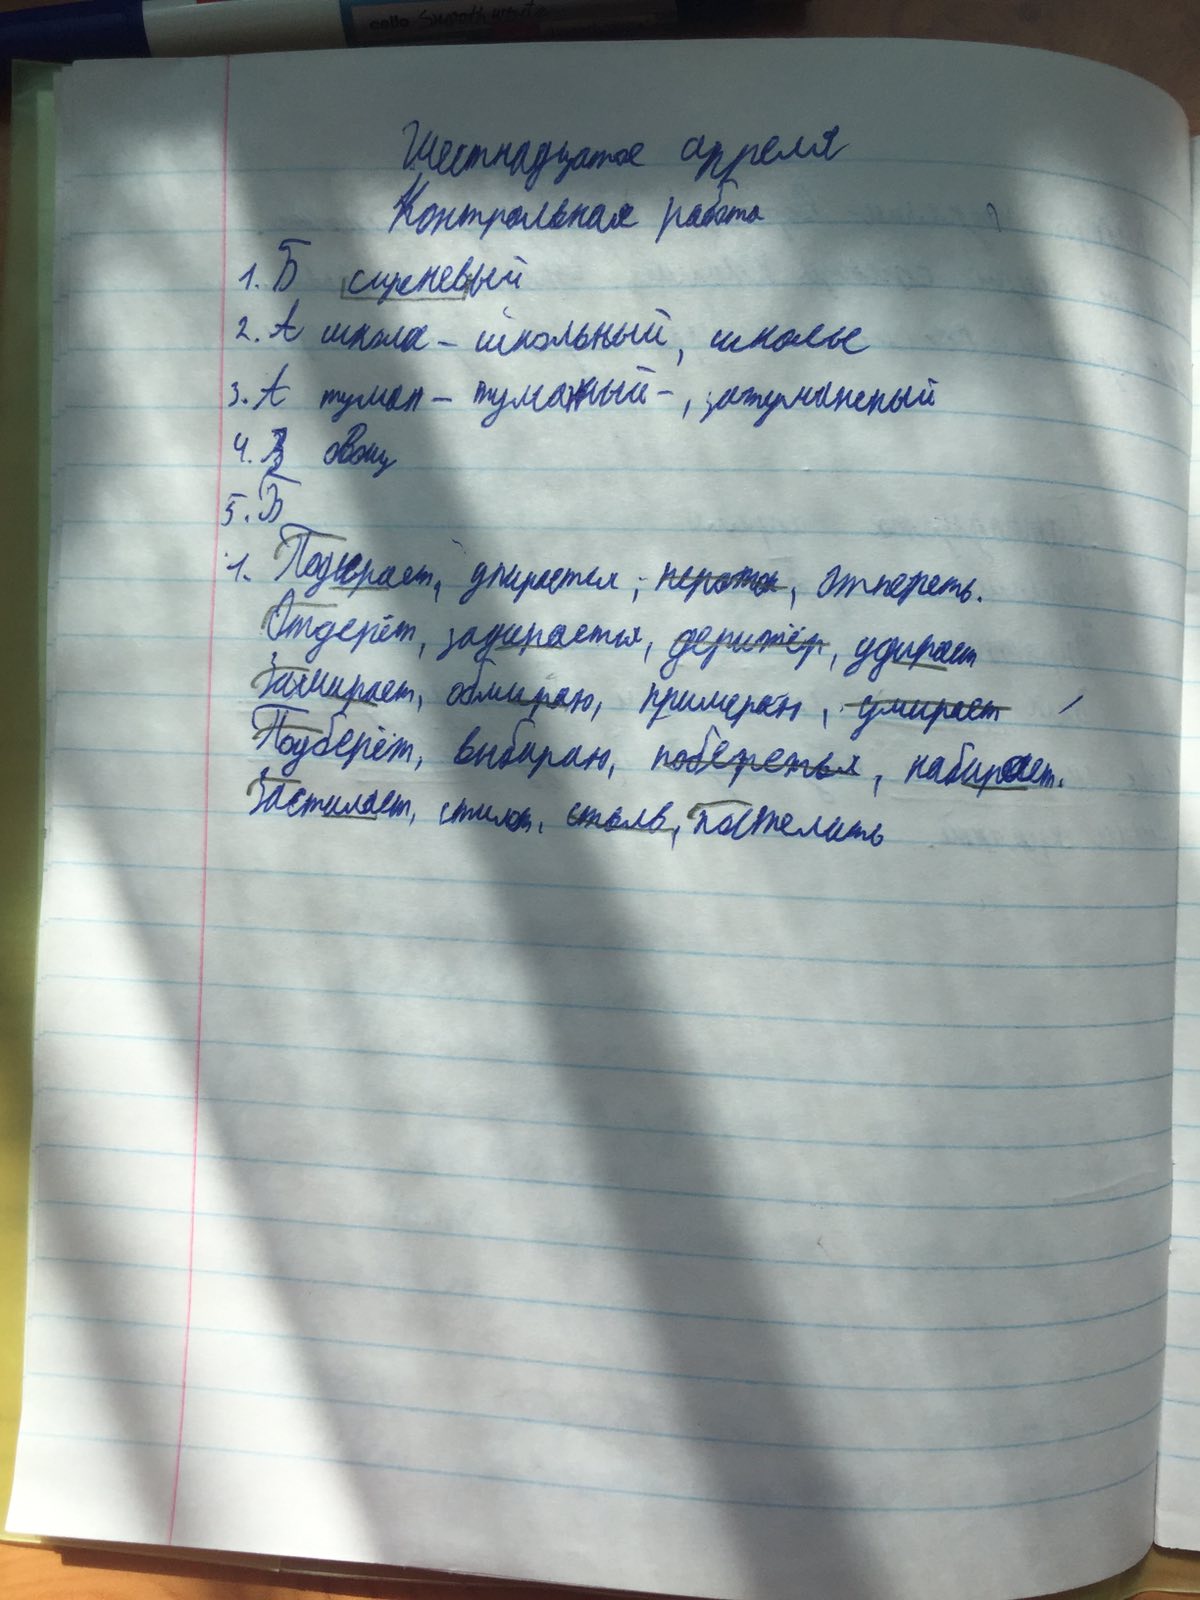 cello
Шестнадцатое апреля
Контрольная работа
1. Б сиреневый
2. А школа – школьный, школы
3. А туман – туманный –, затуманенный
4. В овощ
5. Б
1. Подпирает, упирается, перо, отпереть.
Отдерёт, задирается, дерижёр, удирает
Замирает, обмираю, примеряю, умирает
Подберёт, выбираю, поберетья, набирает.
Застилает, стилол, столв, постелить